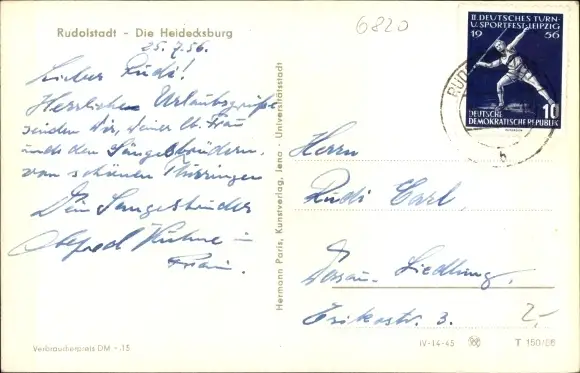 Rudolstadt - Die Heidecksburg
6820
25.7.56.
Lieber Rudi!
Herrlichen Urlaubsgrüße
senden Dir, Deiner lb. Frau
und den Sangesbrüdern,
vom schönen Thüringen
Dein Sangesbruder
Kühne
Frau.
Hermann Paris, Kunstverlag, Jena - Universitätsstadt
II. DEUTSCHES TURN-
U. SPORTFEST LEIPZIG
19 56
10
DEUTSCHE
DEMOKRATISCHE REPUBLIK
RUD
b
Herrn
Rudi Carl,
Dessau - Siedlung,
Erikastr. 3.
2,-
Verbraucherpreis DM -.15
IV-14-45
T 150/56